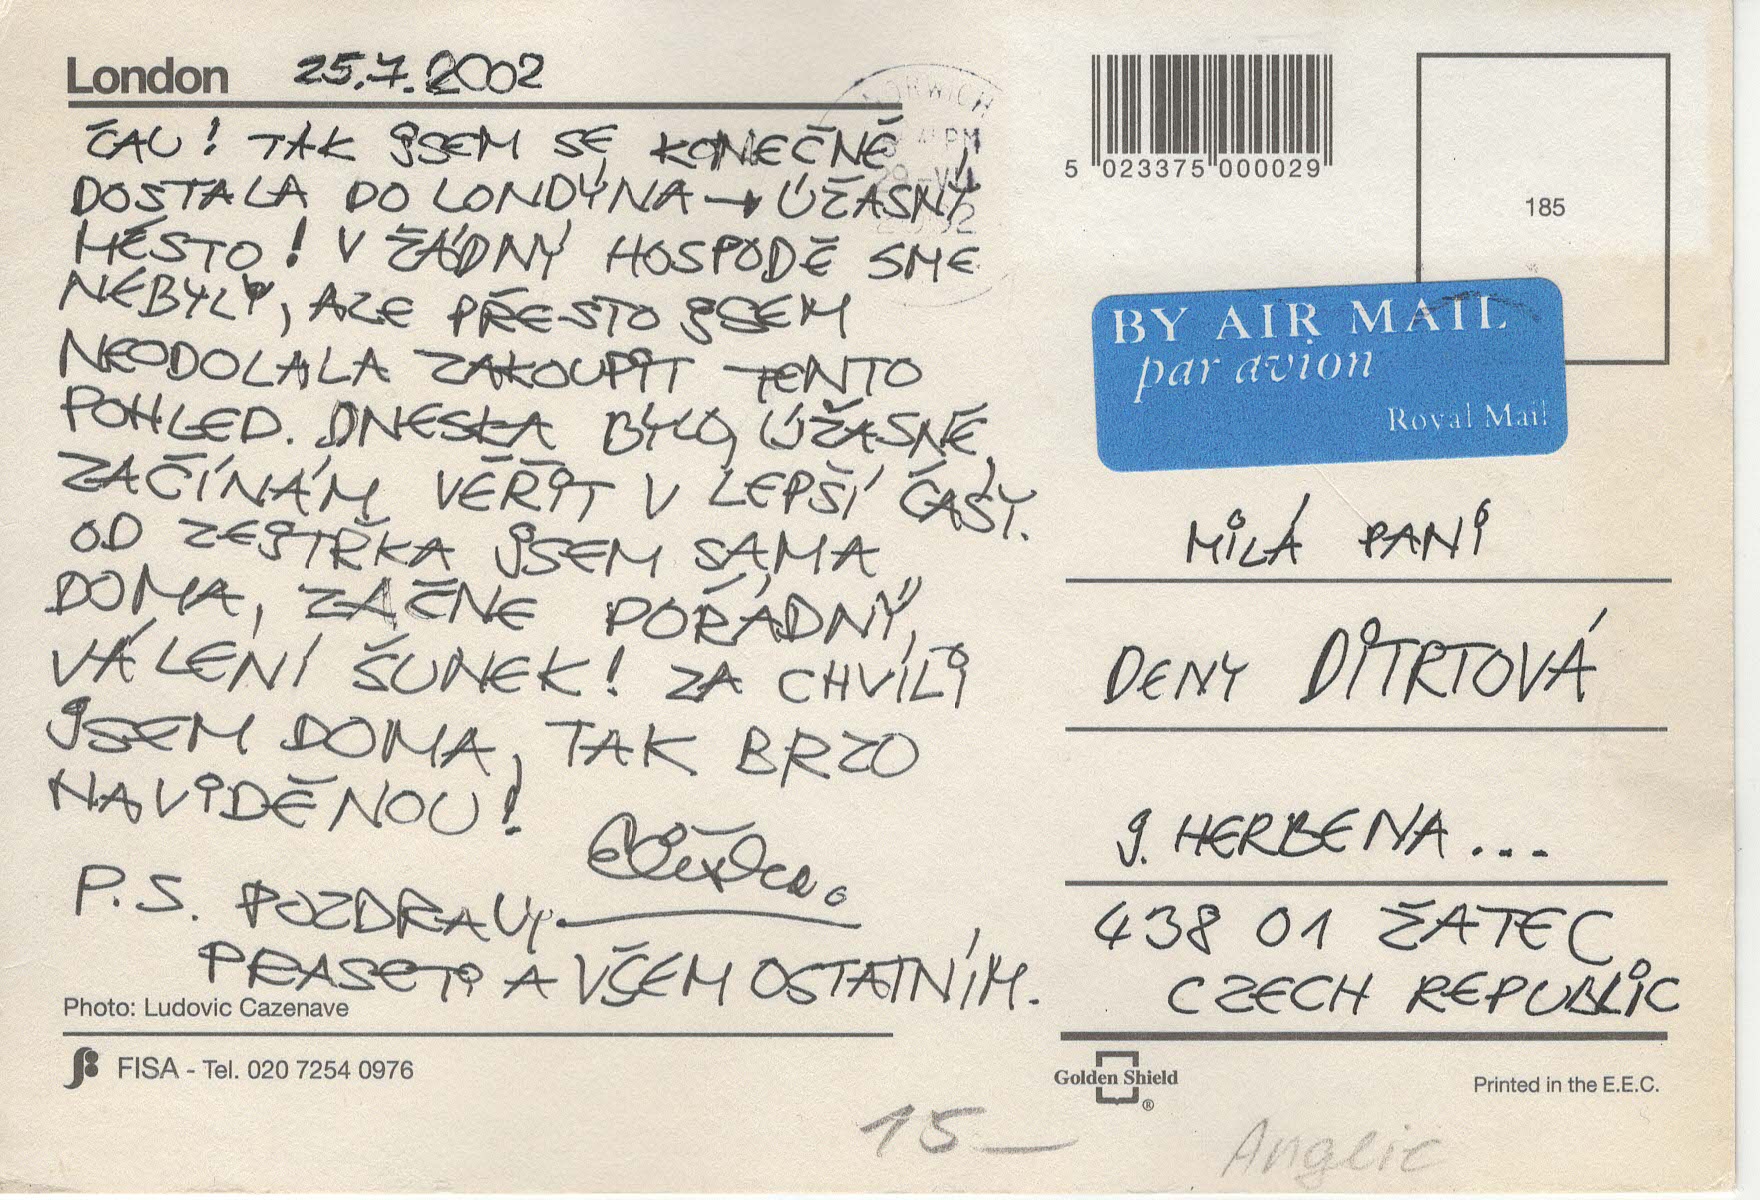 London 25.7.2002
ČAU! TAK JSEM SE KONEČNĚ
DOSTALA DO LONDÝNA → ÚŽASNÝ
MĚSTO! V ŽÁDNÝ HOSPODĚ SME
NEBYLY, ALE PŘESTO JSEM
NEODOLALA ZAKOUPIT TENTO
POHLED. DNESKA BYLO ÚŽASNĚ,
ZAČÍNÁM VĚŘIT V LEPŠÍ ČASY.
OD ZEJTŘKA JSEM SAMA
DOMA, ZAČNE POŘÁDNÝ
VÁLENÍ ŠUNEK! ZA CHVÍLI
JSEM DOMA, TAK BRZO
NAVIDĚNOU!
P.S. POZDRAVUJ
PRASETI A VŠEM OSTATNÍM.
Photo: Ludovic Cazenave
FISA - Tel. 020 7254 0976
NORWICH
4 PM
29-VII
2002
5 023375 000029
185
BY AIR MAIL
par avion
Royal Mail
MILÁ PANI
DENY DITRTOVÁ
J. HERBENA...
438 01 ŽATEC
CZECH REPUBLIC
Golden Shield
®
Printed in the E.E.C.
15-
Anglie